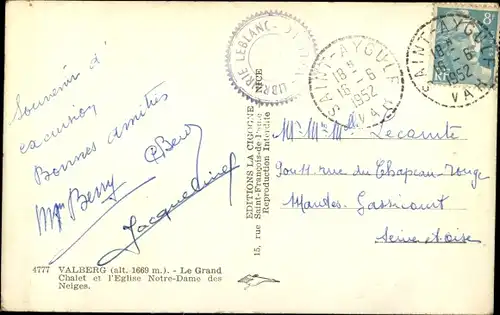 Souvenir d'
excursion
Bonnes amitiés
Mme Berry
Jacqueline
4777 VALBERG (alt. 1669 m.). - Le Grand
Chalet et l'Eglise Notre-Dame des
Neiges.
EDITIONS LA CIGOGNE
15, rue Saint-François-de-Paule NICE
Reproduction Interdite
SAINT-AYGULF
18 H
16 - 6
1952
VAR
SAINT-AYGULF
16 - 6
1952
VAR
8F
Lecomte
9 rue du Chapeau-Rouge
Mantes-Gassicourt
Seine et Oise